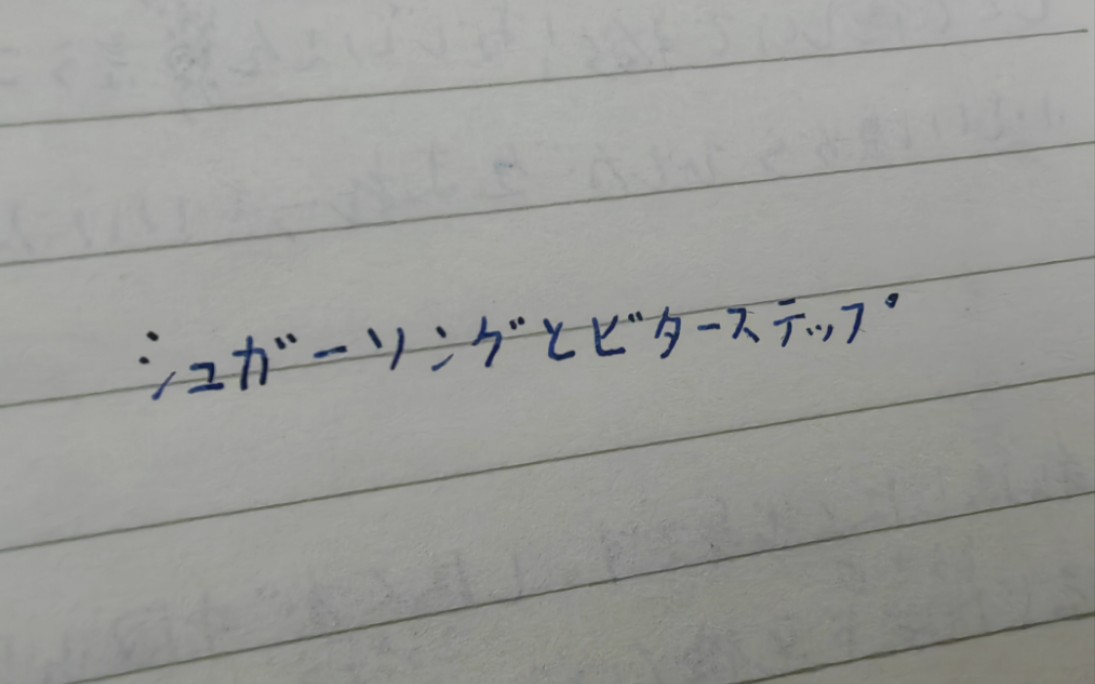 シュガーソングとビターステップ